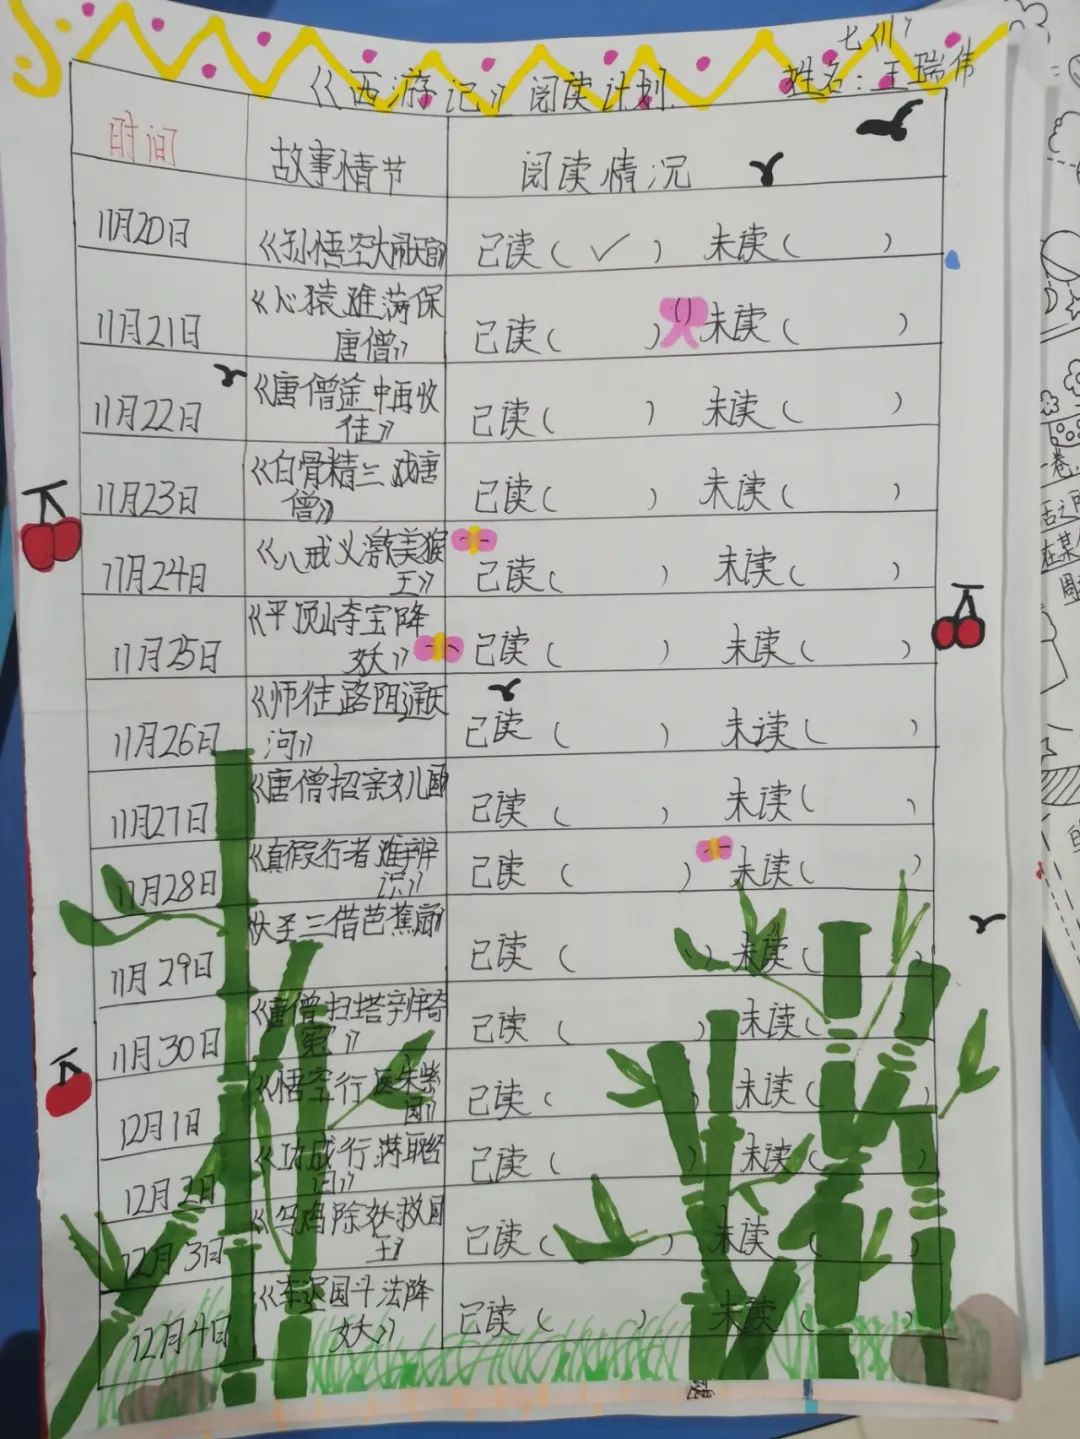 七(11)
《西游记》阅读计划
姓名:王瑞伟
时间 故事情节 阅读情况
11月20日 《孙悟空大闹天宫》 已读(✓) 未读( )
11月21日 《心猿难满保
唐僧》 已读( ) 未读( )
11月22日 《唐僧途中再收
徒》 已读( ) 未读( )
11月23日 《白骨精三戏唐
僧》 已读( ) 未读( )
11月24日 《八戒义激美猴
王》 已读( ) 未读( )
11月25日 《平顶山夺宝降
妖》 已读( ) 未读( )
11月26日 《师徒路阻通天
河》 已读( ) 未读( )
11月27日 《唐僧招亲女儿国 已读( ) 未读( )
11月28日 《真假行者难辨
识》 已读( ) 未读( )
11月29日 三借芭蕉扇》 已读( ) 未读( )
11月30日 《唐僧扫塔辨奇
冤》 已读( ) 未读( )
12月1日 《悟空行医朱紫
国》 已读( ) 未读( )
12月2日 《功成行满取经
回》 已读( ) 未读( )
12月3日 《乌鸡除妖救国
王》 已读( ) 未读( )
12月4日 《车迟国斗法降
妖》 已读( ) 未读( )